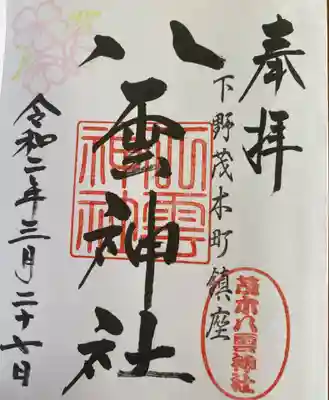 奉拝
下野茂木町鎮座
八雲神社
八雲神社
茂木八雲神社
令和二年三月二十七日